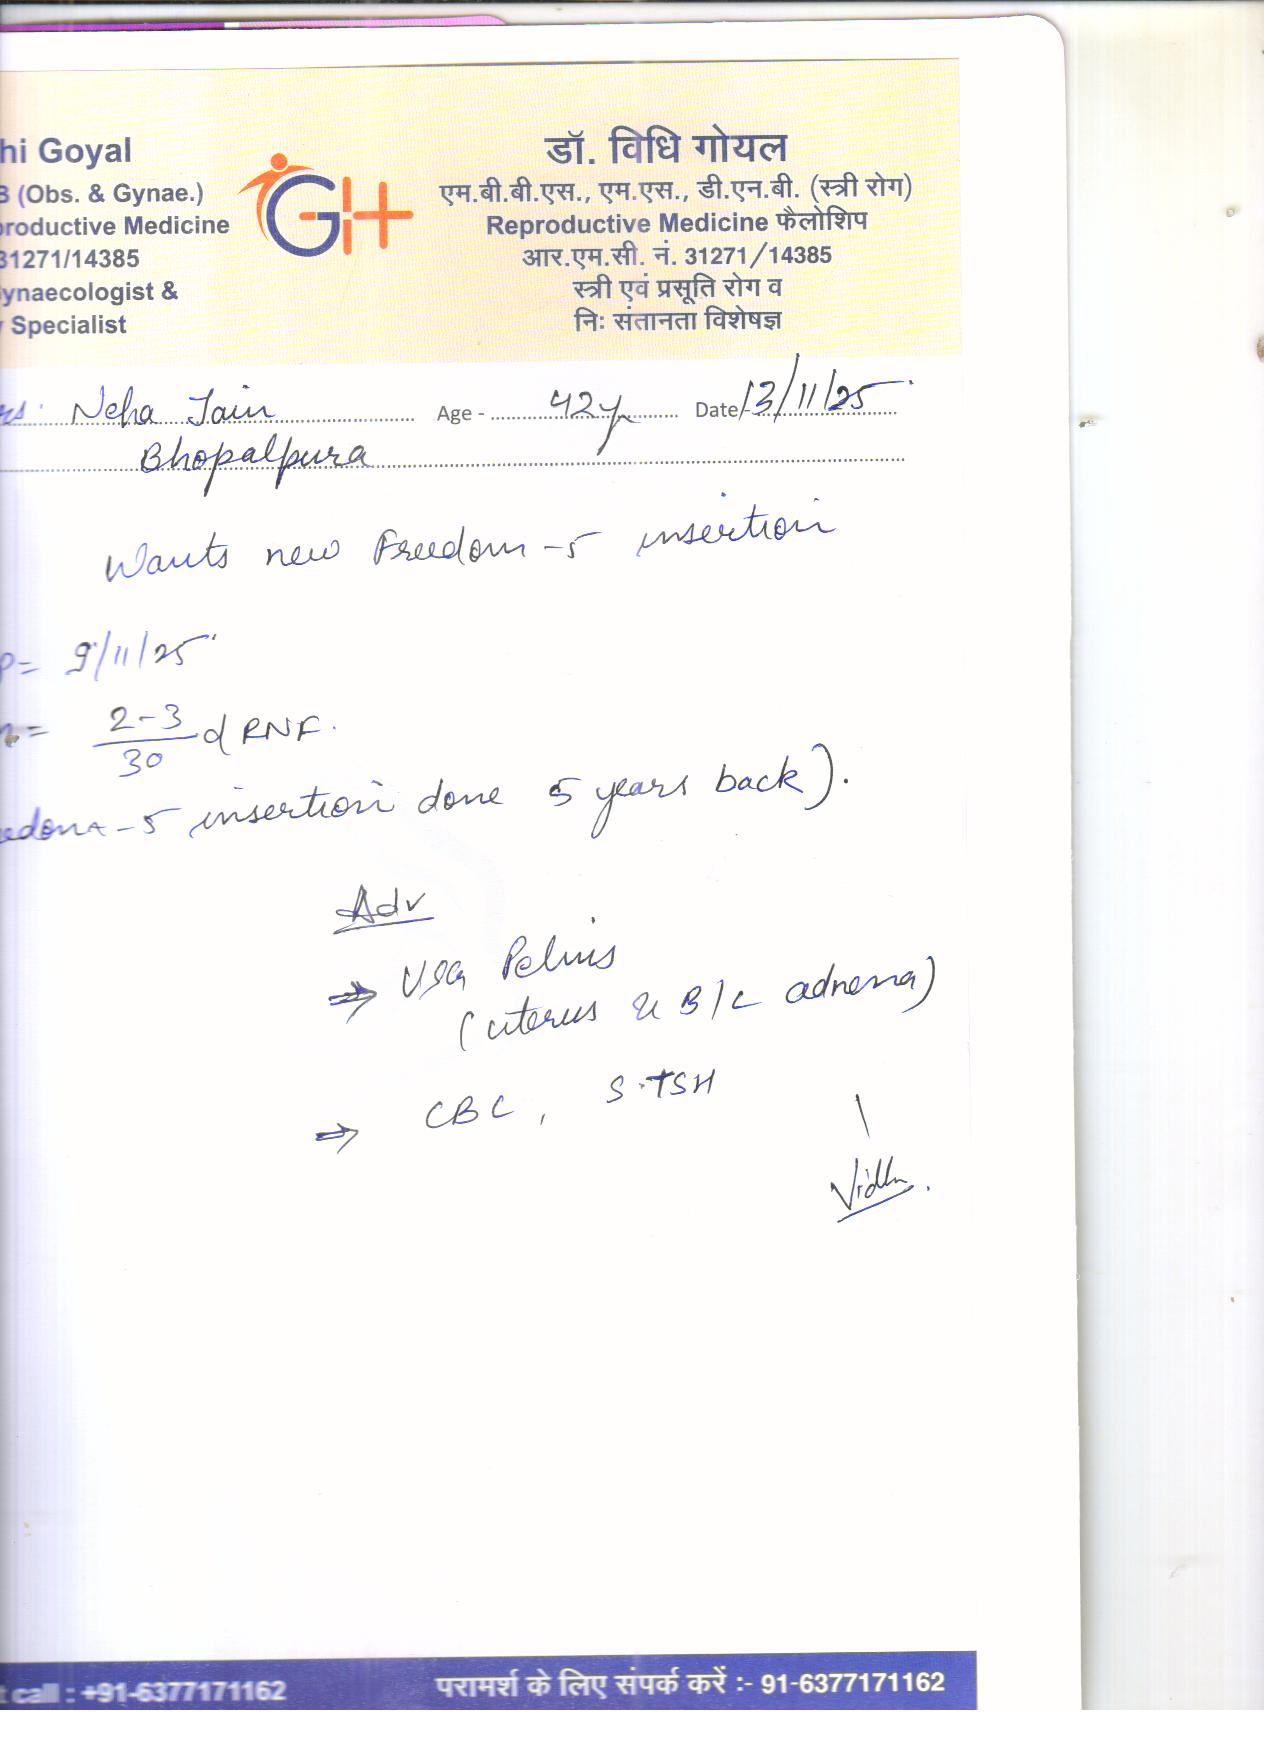 hi Goyal
B (Obs. & Gynae.)
roductive Medicine
31271/14385
ynaecologist &
Specialist
GH
डॉ. विधि गोयल
एम.बी.बी.एस., एम.एस., डी.एन.बी. (स्त्री रोग)
Reproductive Medicine फैलोशिप
आर.एम.सी. नं. 31271/14385
स्त्री एवं प्रसूति रोग व
निः संतानता विशेषज्ञ
rs. Neha Jain Age - 42y Date 13/11/25
Bhopalpura
Wants new Freedom-5 insertion
P= 9/11/25
= 2-3/30 d RNF.
edom-5 insertion done 5 years back).
Adv
⇒ USG Pelvis
(uterus & B/L adnexa)
⇒ CBC, S.TSH
Vidhi
t call : +91-6377171162
परामर्श के लिए संपर्क करें :- 91-6377171162